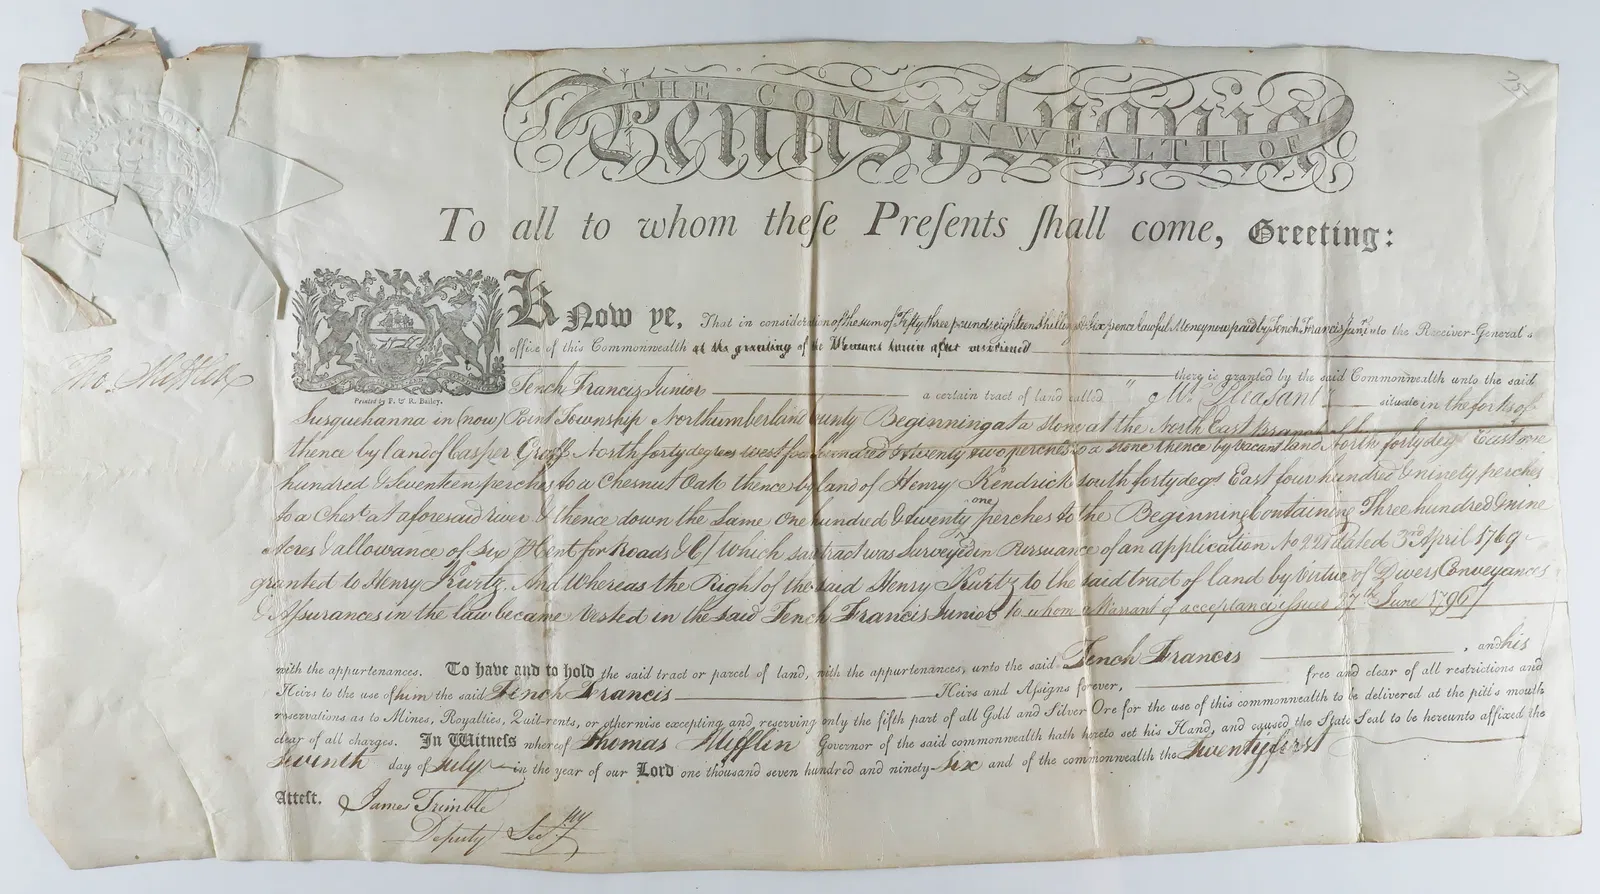 THE COMMONWEALTH OF
Pennsylvania
To all to whom theſe Preſents ſhall come, Greeting:
Know ye, That in consideration of the sum of Fifty three pounds eighteen Shillings & six pence lawful Money now paid by Tench Francis Junr. into the Receiver-General's
office of this Commonwealth at the granting of the Warrant herein after mentioned
there is granted by the said Commonwealth unto the said
Tench Francis Junior a certain tract of land called "Mt. Pleasant" situate in the forks of
Susquehanna in (now) Point Township Northumberland County Beginning at a Stone at the North East Branch of
thence by land of Casper Groff North forty degrees west four hundred & twenty two perches to a stone thence by vacant land North forty degs East one
hundred & Seventeen perches to a Chesnut Oak thence by land of Henry Kendrick south forty degs East four hundred & ninety perches
to a Chest. at aforesaid river & thence down the Same One hundred & twenty one perches to the Beginning Containing Three hundred & nine
Acres & allowance of six ⅌ Cent for Roads &c / Which said tract was Surveyed in Pursuance of an application No dated 3rd April 1769
granted to Henry Kurtz. And Whereas the Right of the said Henry Kurtz to the said tract of land by Virtue of Divers Conveyances
& Aſsurances in the law became Vested in the said Tench Francis Junior to whom a Warrant of acceptance issued 27th June 1796 /
with the appurtenances. To have and to hold the said tract or parcel of land, with the appurtenances, unto the said Tench Francis, and his
Heirs to the use of him the said Tench Francis Heirs and Aſsigns forever, free and clear of all restrictions and
reservations as to Mines, Royalties, Quit-rents, or otherwise excepting and reserving only the fifth part of all Gold and Silver Ore for the use of this commonwealth to be delivered at the pit's mouth
clear of all charges. In Witneſs whereof Thomas Mifflin Governor of the said commonwealth hath hereto set his Hand, and caused the State Seal to be hereunto affixed the
Seventh day of July in the year of our Lord one thousand seven hundred and ninety-six and of the commonwealth the Twenty first
Atteſt. James Trimble
Deputy Secty
Tho. Mifflin
Printed by F. & R. Bailey.